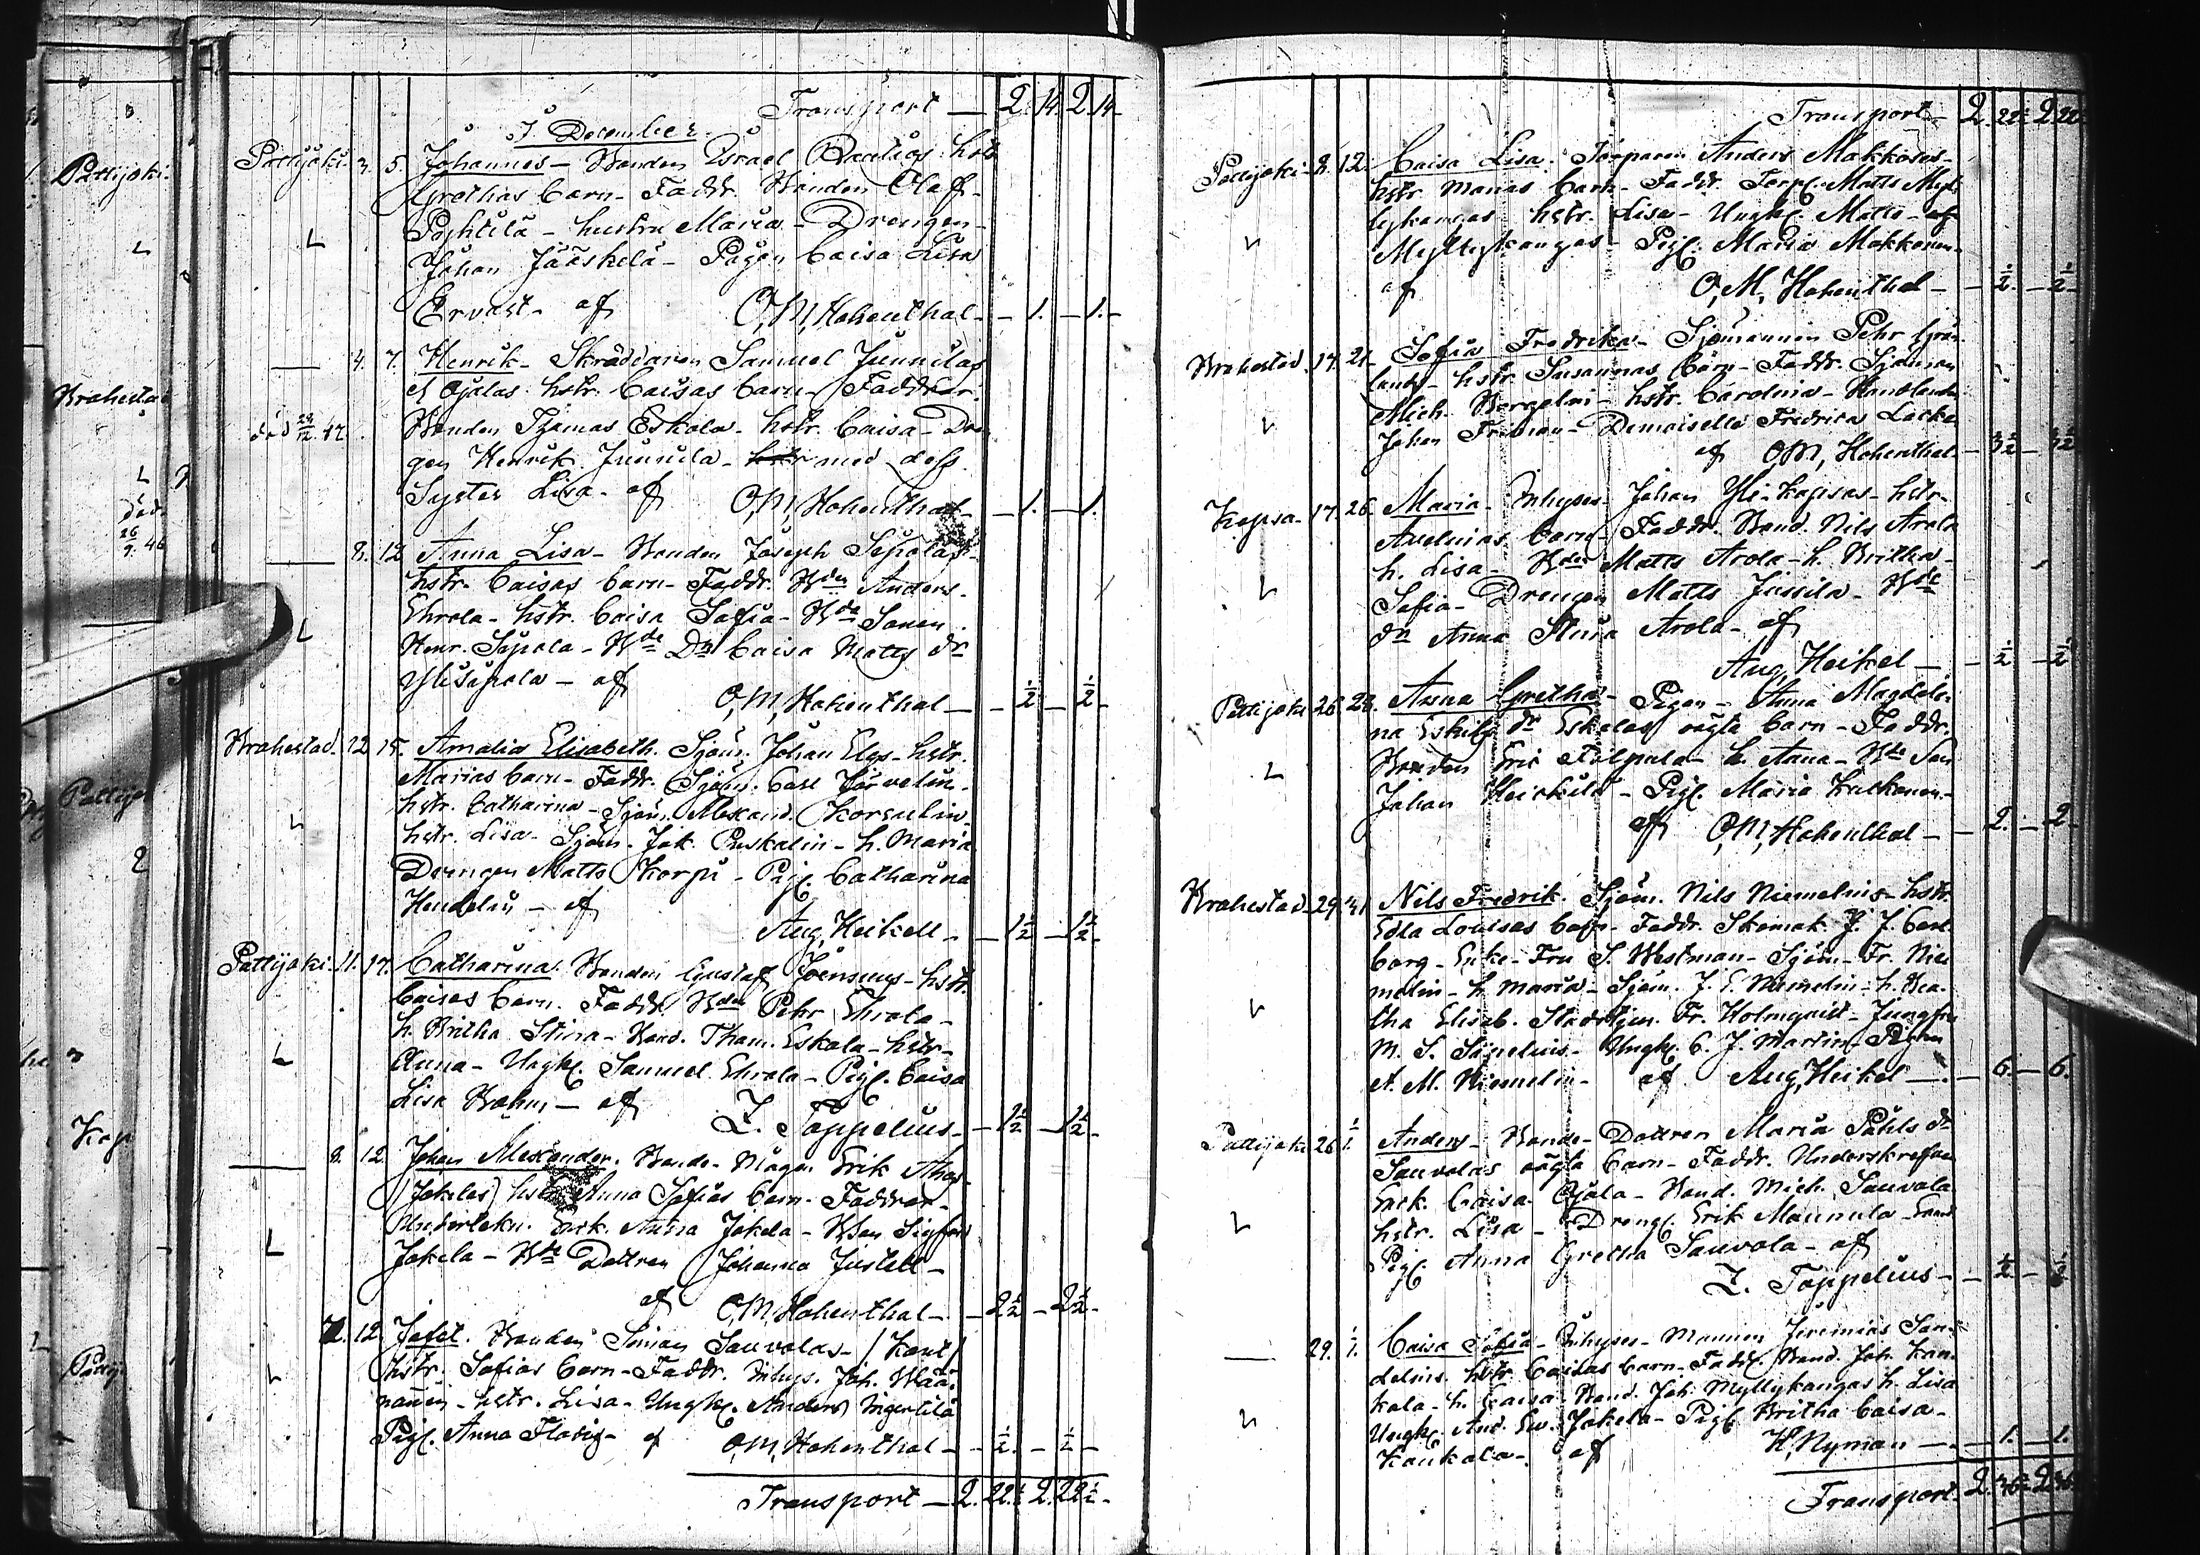 Transport — 2. 14. 2. 14.
I December.
Pattijoki. 3. 5. Johannes — Bonden Israel hstr
Grethas barn — Faddr. Bonden Olaff
Pehtilä — hustru Maria — Drengen
Johan Jääskelä — Pigan Caisa Lisa
Ervast — af O, M, Hohenthal — 1. — 1.
4. 7. Henrik — Skräddaren Samuel Junnilas
el Ojalas hstr. Caisas barn — Faddrar.
död 28/12 42. Bonden Thomas Eskola — hstr. Caisa — Dren
gen Henrik Junnila — med dess
Syster Lisa — af O, M, Hohenthal — 1. — 1.
8. 12 Anna Lisa — Bonden Joseph Sipolas
hstr. Caisas barn — Faddr. Bden Anders
Ehrola — hstr. Caisa Sofia — Bde Sonen
Henr. Sipola — Bde Dr Caisa Matts dr
Ylisipola — af
O, M, Hohenthal — ½ — ½
Brahestad. 12 15. Amalia Elisabeth. Sjöm. Johan Elgs — hstr.
Marias barn — Faddr. Sjöm. Carl Järvelin
hstr. Catharina — Sjöm. Alexand. Korsulin
hstr. Lisa — Sjöm. Jak. Puskalin — h. Maria
Drengen Matts Korpi — Pig. Catharina
Hendelin — af
Aug, Heikell — 1½ — 1½
Pattijoki. 11. 17. Catharina. Bonden Gustaf Joensuus — hstr.
Caisas barn. Faddr. Bden Pehr Ehrola —
h. Britha Stina — Bond. Thom. Eskola — hstr
Anna — Ungk. Samuel Ehrola — Pig. Caisa
Lisa Böhm — af
Z. Toppelius — 1½ — 1½
8. 12. Johan Alexander. Bonde-Mågen Erik
Jokelas) hstr Anna Sofias barn — Faddrar
Enk. Anna Jokela — Sigfrid
Jokela — Bde Dottren Johanna Justell —
af O, M, Hohenthal — 2½ — 2½
12. Jafet. Bonden Simon Sauvolas — /Kant/
hstr. Sofias barn — Faddr. Inhys. Joh. Wää
nänen — hstr. Lisa — Ungk. Anders
Pig. Anna — af O, M, Hohenthal — ½ — ½
Transport — 2. 22½ 2. 22½
Transport — 2. 22½ 2. 22½
Pattijoki. 8. 12. Caisa Lisa. Torparen Anders Makkoses
hstr Marias barn — Faddr. Torp. Matts Myl
lykangas hstr. Lisa — Ungk. Matts — af
Myllykangas — Pig. Maria Makkonen
af O, M, Hohenthal — ½ — ½
Brahestad. 17. 21. Sofia Fredrika — Sjömannen Pehr Grön
lunds — hstr Susannas barn — Faddr. Sjöman
Mich. Bergelin — hstr. Carolina — Handlanden
Johan Friman — Demoiselle Fredrica
af O, M, Hohenthal — 3½ — 3½
Kopsa. 17. 26. Maria. Inhyses Johan Yli-Kopsas — hstr
Avelinas barn — Faddr. Bond. Nils Arola
h. Lisa — Bden Matts Arola — h. Britha
Sofia — Drengen Matts Jussila — Bde
dr Anna Stina Arola — af
Aug, Heikel — ½ — ½
Pattijoki 26. 28. Anna Gretha — Pigan — Anna Magdale
na Eskils dr Eskolas oägta barn — Faddr.
Bonden Eric Filpula — h. Anna — Bde Son
Johan Heikkilä — Pig. Maria
af O, M, Hohenthal — 2. — 2.
Brahestad 29. 31. Nils Fredrik. Sjöm. Nils Niemelins — hstr.
Edla Lovisas barn. Faddr. Skomak. J. J. Carl
borg — Enke-Fru S. Westman — Sjöm — Fr. Nie
melin — h. Maria — Sjöm. J. E. Niemelin — h. Bea
tha Elisab. Stadstjen. Fr. Holmqvist — Jungfru
M. S. Sipelius — Ungk. C. J. Martin Pigan
A. M. Niemelin — af Aug, Heikel — 6. — 6.
Pattijoki 26. 1/1. Anders — Bonde-Dottren Maria Påhls dr
Sauvolas oägta barn — Faddr.
Enk. Caisa Ojala — Bond. Mich. Sauvola
hstr. Lisa — Dreng. Erik Mannula
Pig. Anna Gretha Sauvola — af
Z. Toppelius — ½ — ½
29. 1/1. Caisa Sofia — Inhyses-Mannen Jeremias San
delins hstr. Caisas barn — Faddr. Bond. Joh. Kau
kola — h. Caisa Bond. Joh. Myllykangas h. Lisa
Ungk. And. Jokela — Pig. Britha Caisa
Kaukola — af H, Nyman — 1. — 1.
Transport. 2. 36½ 2. 36½
Pattijoki.
Brahestad
död
26/9. 46
Pattijo
Kop